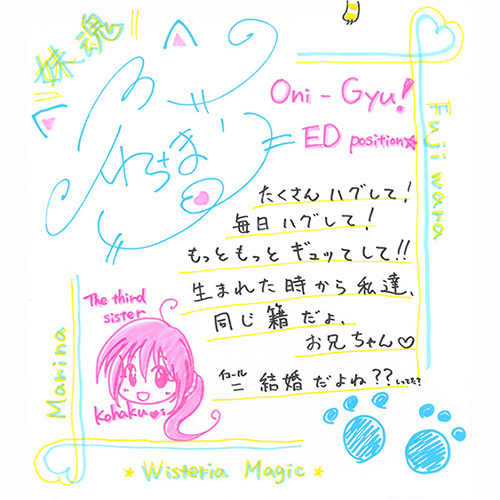 妹魂
Oni-Gyu!
= ED position☆
たくさんハグして!
毎日ハグして!
もっともっとギュッてして!!
生まれた時から私達、
同じ籍だよ、
お兄ちゃん♡
イコール
= 結婚だよね??しってた?
The third
sister
Kohaku♥
Marina
Fujiwara
★Wisteria Magic★